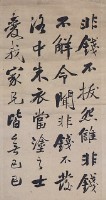 非錢不拔怨讎非錢
不解令聞非錢不發
洛中朱衣當塗之士
愛我家兄皆無已已